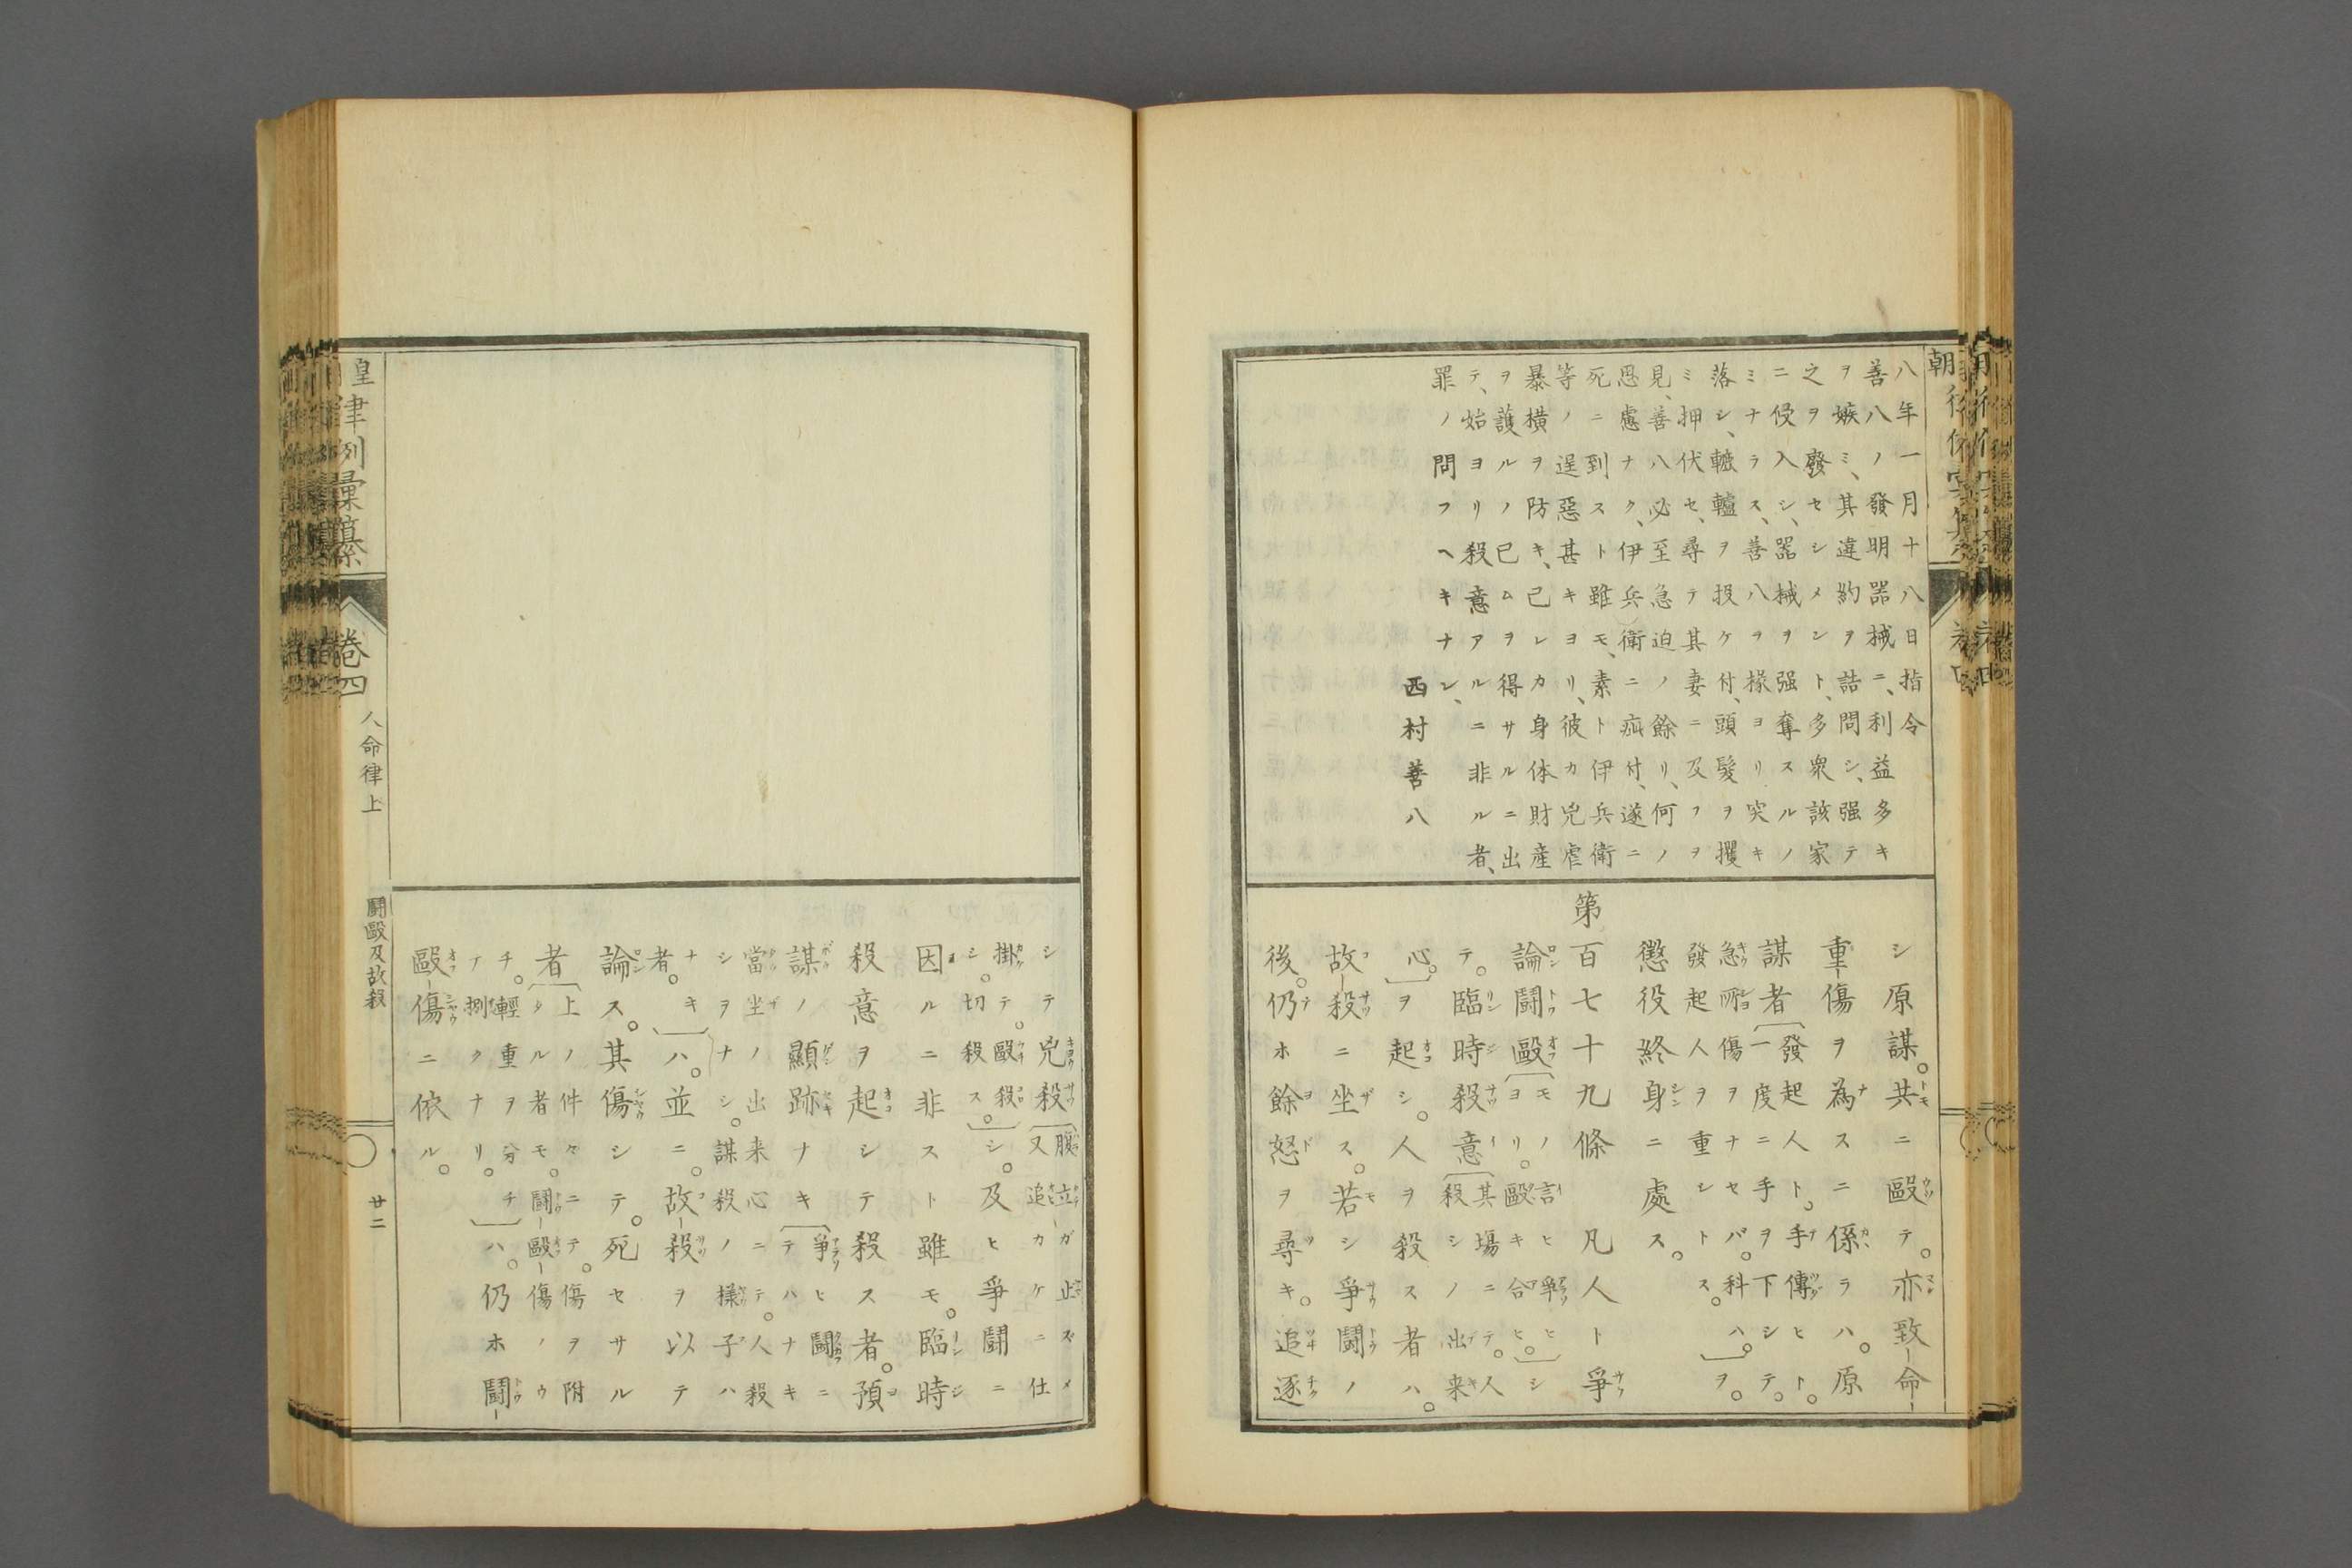 八年一月十八日指令
善八ノ發明器械ニ、利益多キ
ヲ嫉ミ、其違約ヲ詰問シ、强テ
之ヲ發セシメント、多衆該家
ニ侵入シ、器械ヲ强奪スルノ
ミナラス、善八ヲ椽ヨリ突キ
落シ、轆轤ヲ投ケ付、頭髮ヲ攫
ミ押伏セ、尋テ其妻ニ及フヲ
見、善八必至急迫ノ餘リ、何ノ
思慮ナク、伊兵衛ニ疵付、遂ニ
死ニ到スト雖モ、素ト伊兵衛
等ノ逞惡甚キヨリ、彼カ兇虐
暴橫ヲ防キ、己レカ身体財産
ヲ護ルノ已ムヲ得サルニ出
テ、始ヨリ殺意アルニ非ル者、
罪ノ問フヘキナシ、
西村善八
シ原謀。共ニ毆テ。亦致命
重傷ヲ為スニ係ラハ。原
謀者 發起人ト。手傳ヒト。一度ニ手ヲ下シテ。
急所傷ヲナセバ。科ハ。發起人ヲ重シトス。ヲ。
懲役終身ニ處ス。
第百七十九條 凡人ト爭
論鬪毆 モノ言ヒ爭ヒヨリ。毆キ合ヒ。シ
テ。臨時殺意 其場ニテ。人殺シノ出来
心。ヲ起シ。人ヲ殺ス者ハ。
故殺ニ坐ス。若シ爭鬪ノ
後。仍ホ餘怒ヲ尋キ。追逐
皇律例彙纂 卷四 人命律上 鬪毆及故殺 廿二
シテ兇殺 腹立ガ止ズメ又追カケニ仕
掛テ。毆殺シ。切殺ス。シ。及ヒ爭鬪ニ
因ルニ非スト雖モ。臨時
殺意ヲ起シテ殺ス者。預
謀ノ顯跡ナキ 爭ヒ鬪ニテハナキ
當坐ノ出来心ニテ。人殺シヲナシ。謀殺ノ様子ハナキ
者。ハ。並ニ。故殺ヲ以テ
論ス。其傷シテ。死セサル
者 上ノ件々ニテ。傷ヲ附タル者モ。鬪毆傷ノウ
チ。輕重ヲ分チテ捌クナリ。ハ。仍ホ鬪
毆傷ニ依ル。